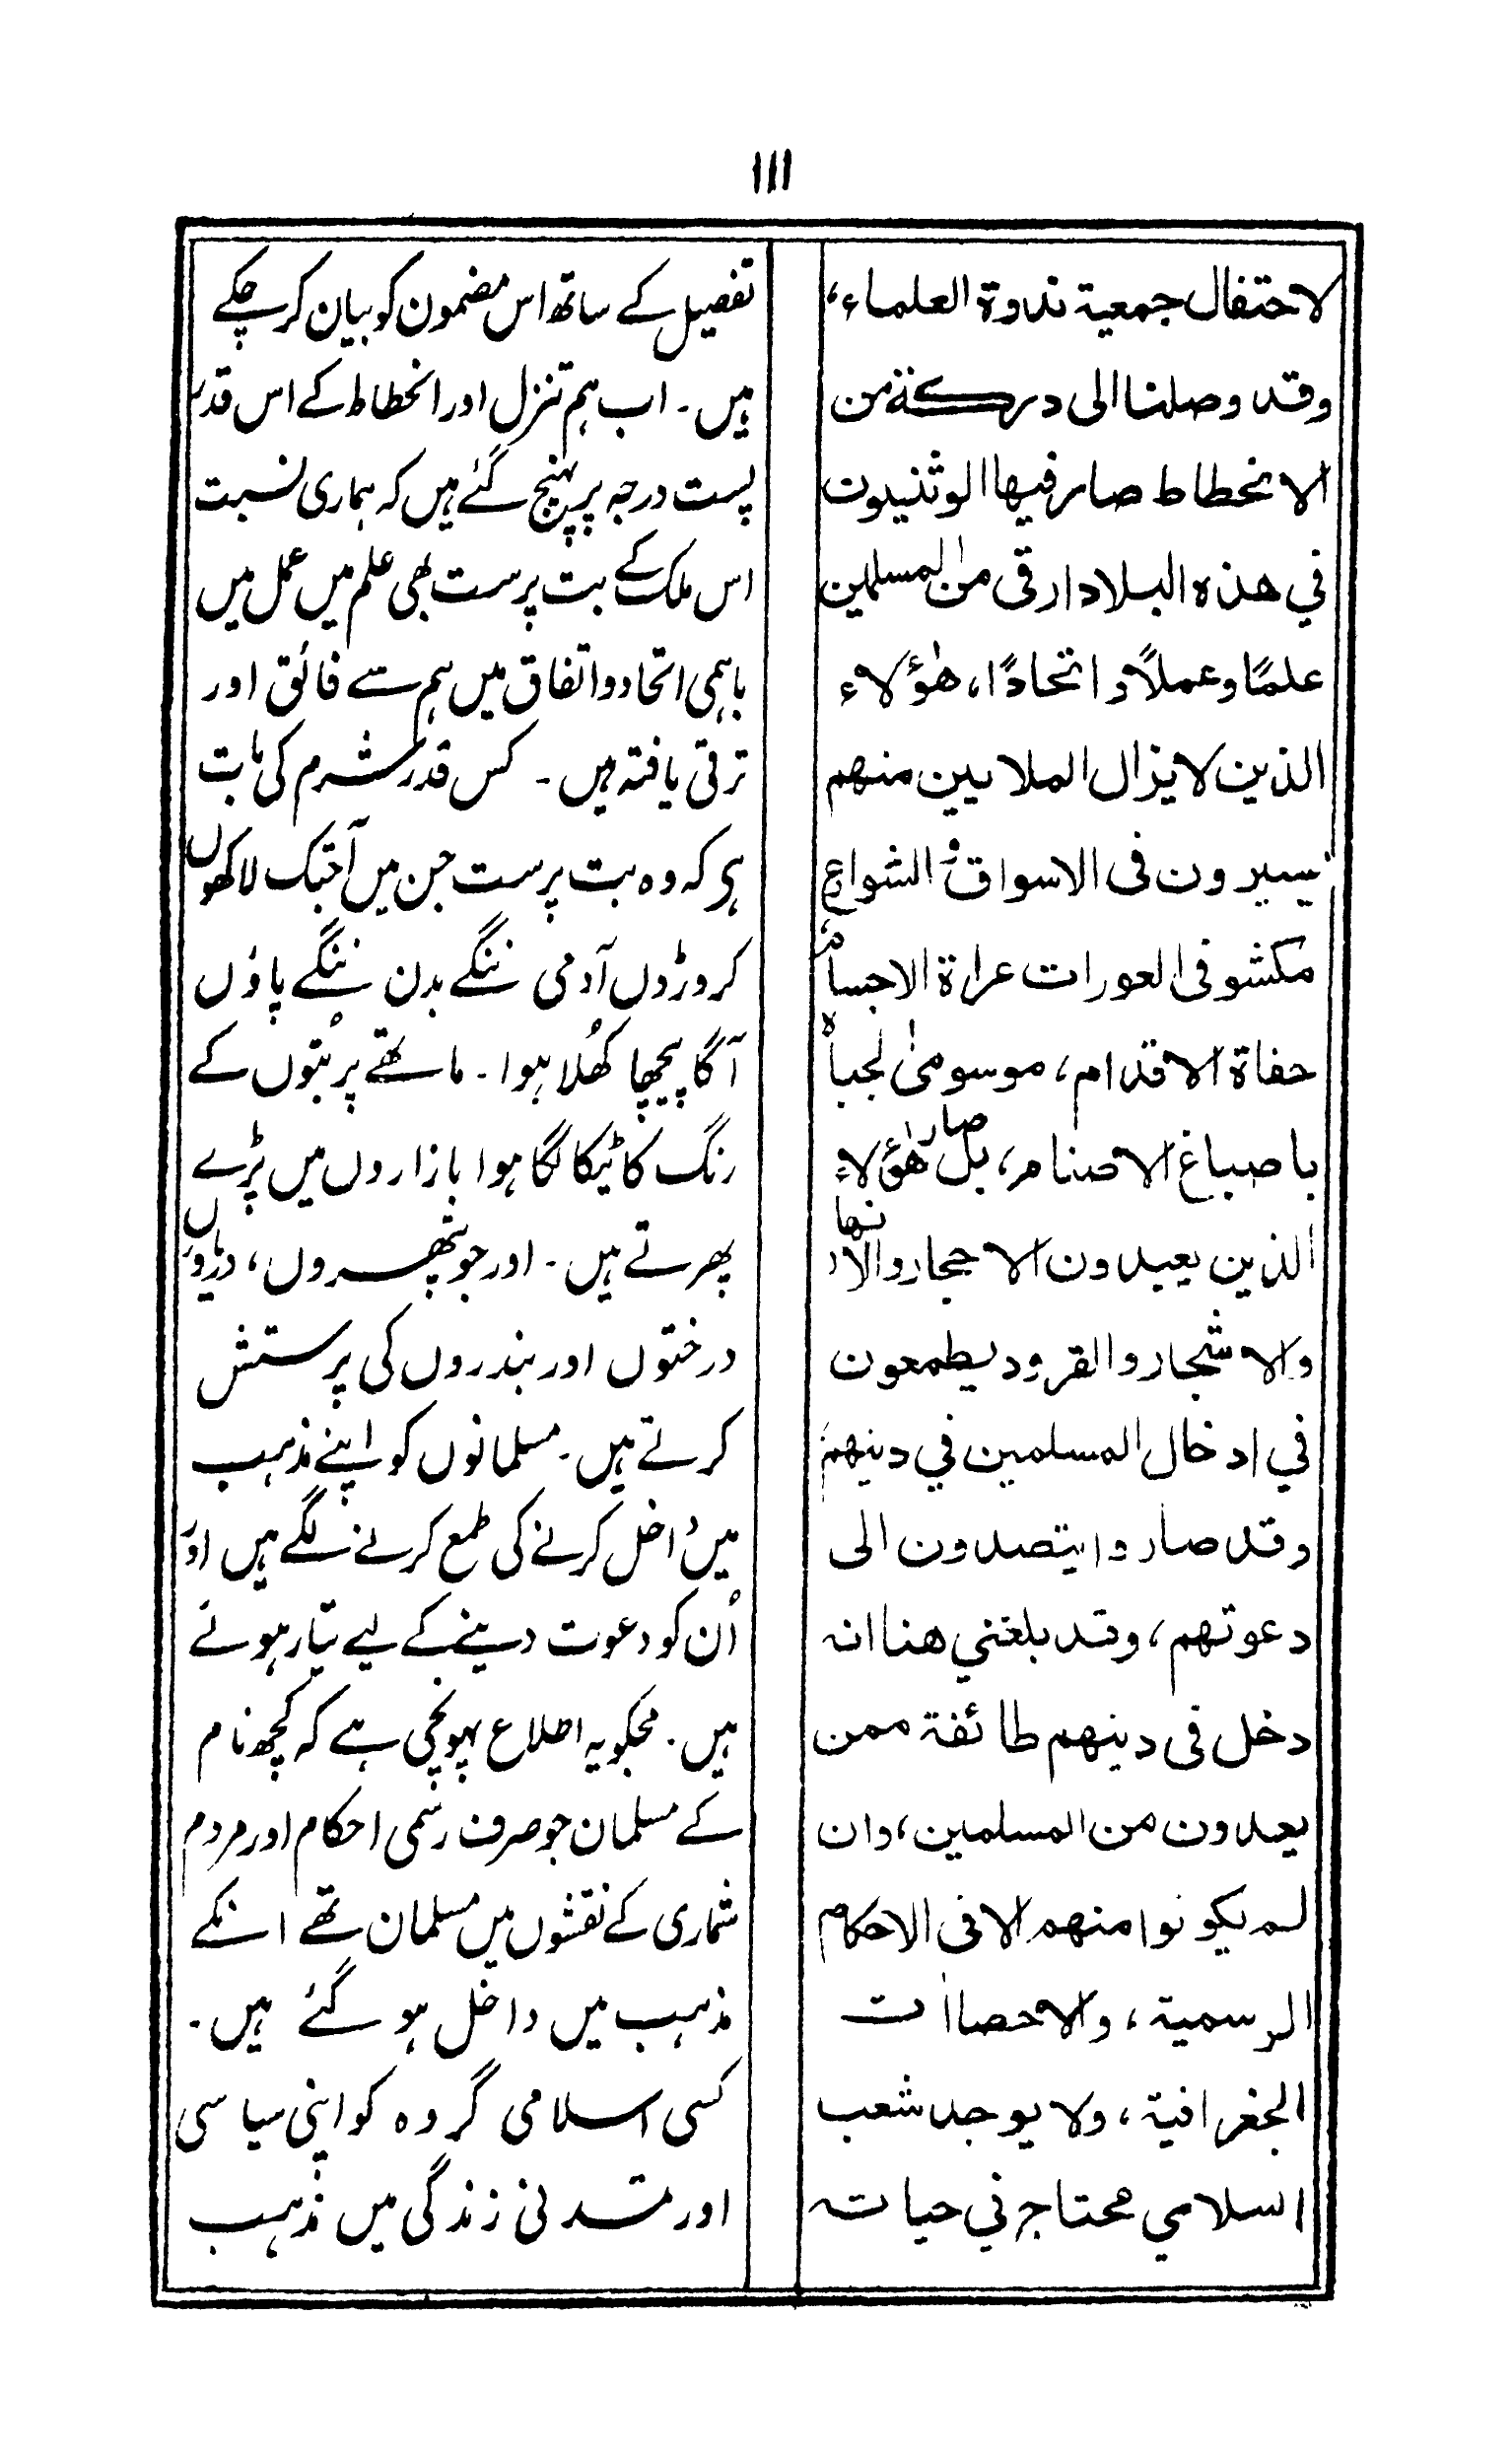 ١١١
لاحتفال جمعية ندوة العلماء،
وقد وصلنا الى دركة من
الانحطاط صار فيها الوثنيون
في هذه البلاد ارقى من المسلمين
علمًا وعملاً واتحادًا، هٰؤلاء
الذين لا يزال الملايين منهم
يسيرون فى الاسواق و الشوارع
مكشوفى العورات عراة الاجسام
حفاة الاقدام، موسومى الجباه
باصباغ الاصنام، بل صار هٰؤلاء
الذين يعبدون الاحجار والانهار
والاشجار والقرود يطمعون
في ادخال المسلمين في دينهم
وقد صاروا يتصدون الى
دعوتهم، وقد بلغني هنا انه
دخل فى دينهم طائفة ممن
يعدون من المسلمين، وان
لم يكونوا منهم الا فى الاحكام
الرسمية، والاحصاات
الجغرافية، ولا يوجد شعب
اسلامي محتاج في حياته
تفصیل کے ساتھ اس مضمون کو بیان کر چکے
ہیں۔ اب ہم تنزل اور انحطاط کے اس قدر
پست درجہ پر پہنچ گئے ہیں کہ ہماری نسبت
اس ملک کے بت پرست بھی علم میں عمل میں
باہمی اتحاد و اتفاق میں ہم سے فائق اور
ترقی یافتہ ہیں۔ کس قدر شرم کی بات
ہی کہ وہ بت پرست جن میں آجتک لاکھوں
کروڑوں آدمی ننگے بدن ننگے پاؤں
آگا پیچھا کھُلا ہوا۔ ماتھے پر بُتوں کے
رنگ کا ٹیکا لگا ہوا بازاروں میں پڑے
پھرتے ہیں۔ اور جو پتھروں، دریاؤں
درختوں اور بندروں کی پرستش
کرتے ہیں۔ مسلمانوں کو اپنے مذہب
میں داخل کرنے کی طمع کرنے لگے ہیں اور
اُن کو دعوت دینے کے لیے تیار ہوئے
ہیں۔ مجکو یہ اطلاع پہونچی ہے کہ کچھ نام
کے مسلمان جو صرف رسمی احکام اور مردم
شماری کے نقشوں میں مسلمان تھے انکے
مذہب میں داخل ہو گئے ہیں۔
کسی اسلامی گروہ کو اپنی سیاسی
اور تمدنی زندگی میں مذہب